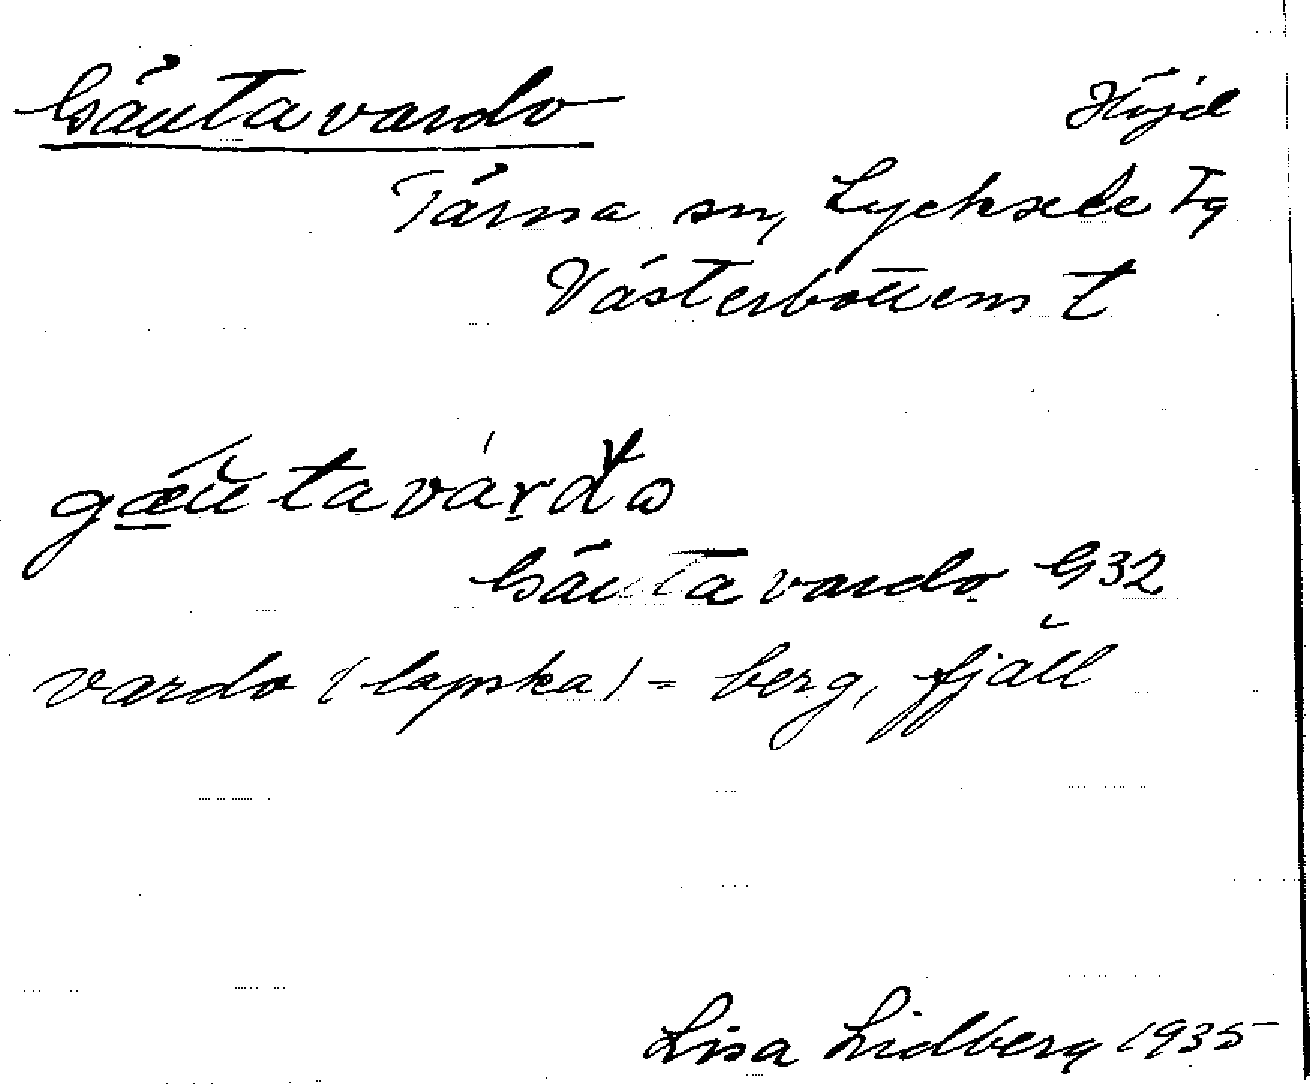 Gäutavardo Höjd
Tärna sn, Lycksele Tg
Västerbottens l
gǽ̱ŭtavárdo
Gäutavardo G32
vardo (lapska) = berg, fjäll
Lisa Lidberg 1935